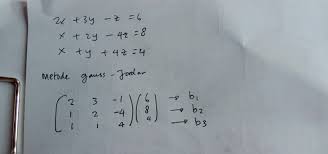 2x + 3y - z = 6
x + 2y - 4z = 8
x + y + 4z = 4
Metode gauss - Jordan
( 2 3 -1 ) ( 6 ) → b1
( 1 2 -4 ) ( 8 ) → b2
( 1 1 4 ) ( 4 ) → b3